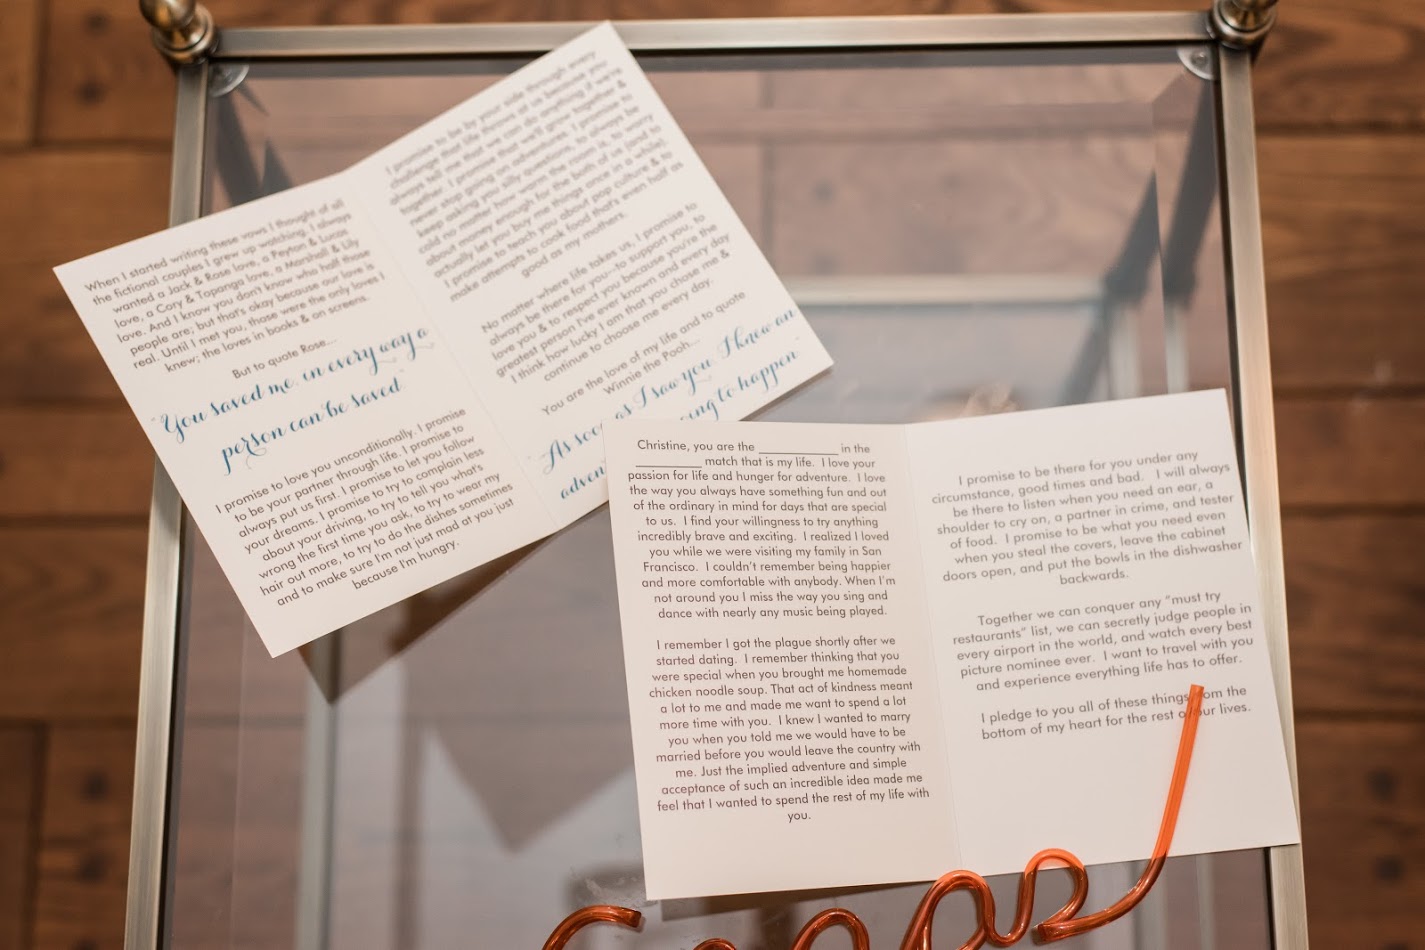 When I started writing these vows I thought of all
the fictional couples I grew up watching. I always
wanted a Jack & Rose love, a Peyton & Lucas
love, a Cory & Topanga love, a Marshall & Lily
love. And I know you don't know who half those
people are; but that's okay because our love is
real. Until I met you, those were the only loves I
knew; the loves in books & on screens.
But to quote Rose...
"You saved me, in every way a
person can be saved"
I promise to love you unconditionally. I promise
to be your partner through life. I promise to
always put us first. I promise to let you follow
your dreams. I promise to try to complain less
about your driving, to try to tell you what's
wrong the first time you ask, to try to wear my
hair out more, to try to do the dishes sometimes
and to make sure I'm not just mad at you just
because I'm hungry.
I promise to be by your side through every
challenge that life throws at us because you
always tell me that we can do anything if we're
together. I promise that we'll grow together &
never stop going on adventures. I promise to
keep asking you silly questions, to always be
cold no matter how warm the room is, to worry
about money enough for the both of us (and to
actually let you buy me things once in a while).
I promise to teach you about pop culture & to
make attempts to cook food that's even half as
good as my mothers.
No matter where life takes us, I promise to
always be there for you--to support you, to
love you & to respect you because you're the
greatest person I've ever known and every day
I think how lucky I am that you chose me &
continue to choose me every day.
You are the love of my life and to quote
Winnie the Pooh...
"As soon as I saw you, I knew an
going to happen"
Christine, you are the ____________ in the
__________ match that is my life. I love your
passion for life and hunger for adventure. I love
the way you always have something fun and out
of the ordinary in mind for days that are special
to us. I find your willingness to try anything
incredibly brave and exciting. I realized I loved
you while we were visiting my family in San
Francisco. I couldn't remember being happier
and more comfortable with anybody. When I'm
not around you I miss the way you sing and
dance with nearly any music being played.
I remember I got the plague shortly after we
started dating. I remember thinking that you
were special when you brought me homemade
chicken noodle soup. That act of kindness meant
a lot to me and made me want to spend a lot
more time with you. I knew I wanted to marry
you when you told me we would have to be
married before you would leave the country with
me. Just the implied adventure and simple
acceptance of such an incredible idea made me
feel that I wanted to spend the rest of my life with
you.
I promise to be there for you under any
circumstance, good times and bad. I will always
be there to listen when you need an ear, a
shoulder to cry on, a partner in crime, and tester
of food. I promise to be what you need even
when you steal the covers, leave the cabinet
doors open, and put the bowls in the dishwasher
backwards.
Together we can conquer any "must try
restaurants" list, we can secretly judge people in
every airport in the world, and watch every best
picture nominee ever. I want to travel with you
and experience everything life has to offer.
I pledge to you all of these things from the
bottom of my heart for the rest of our lives.